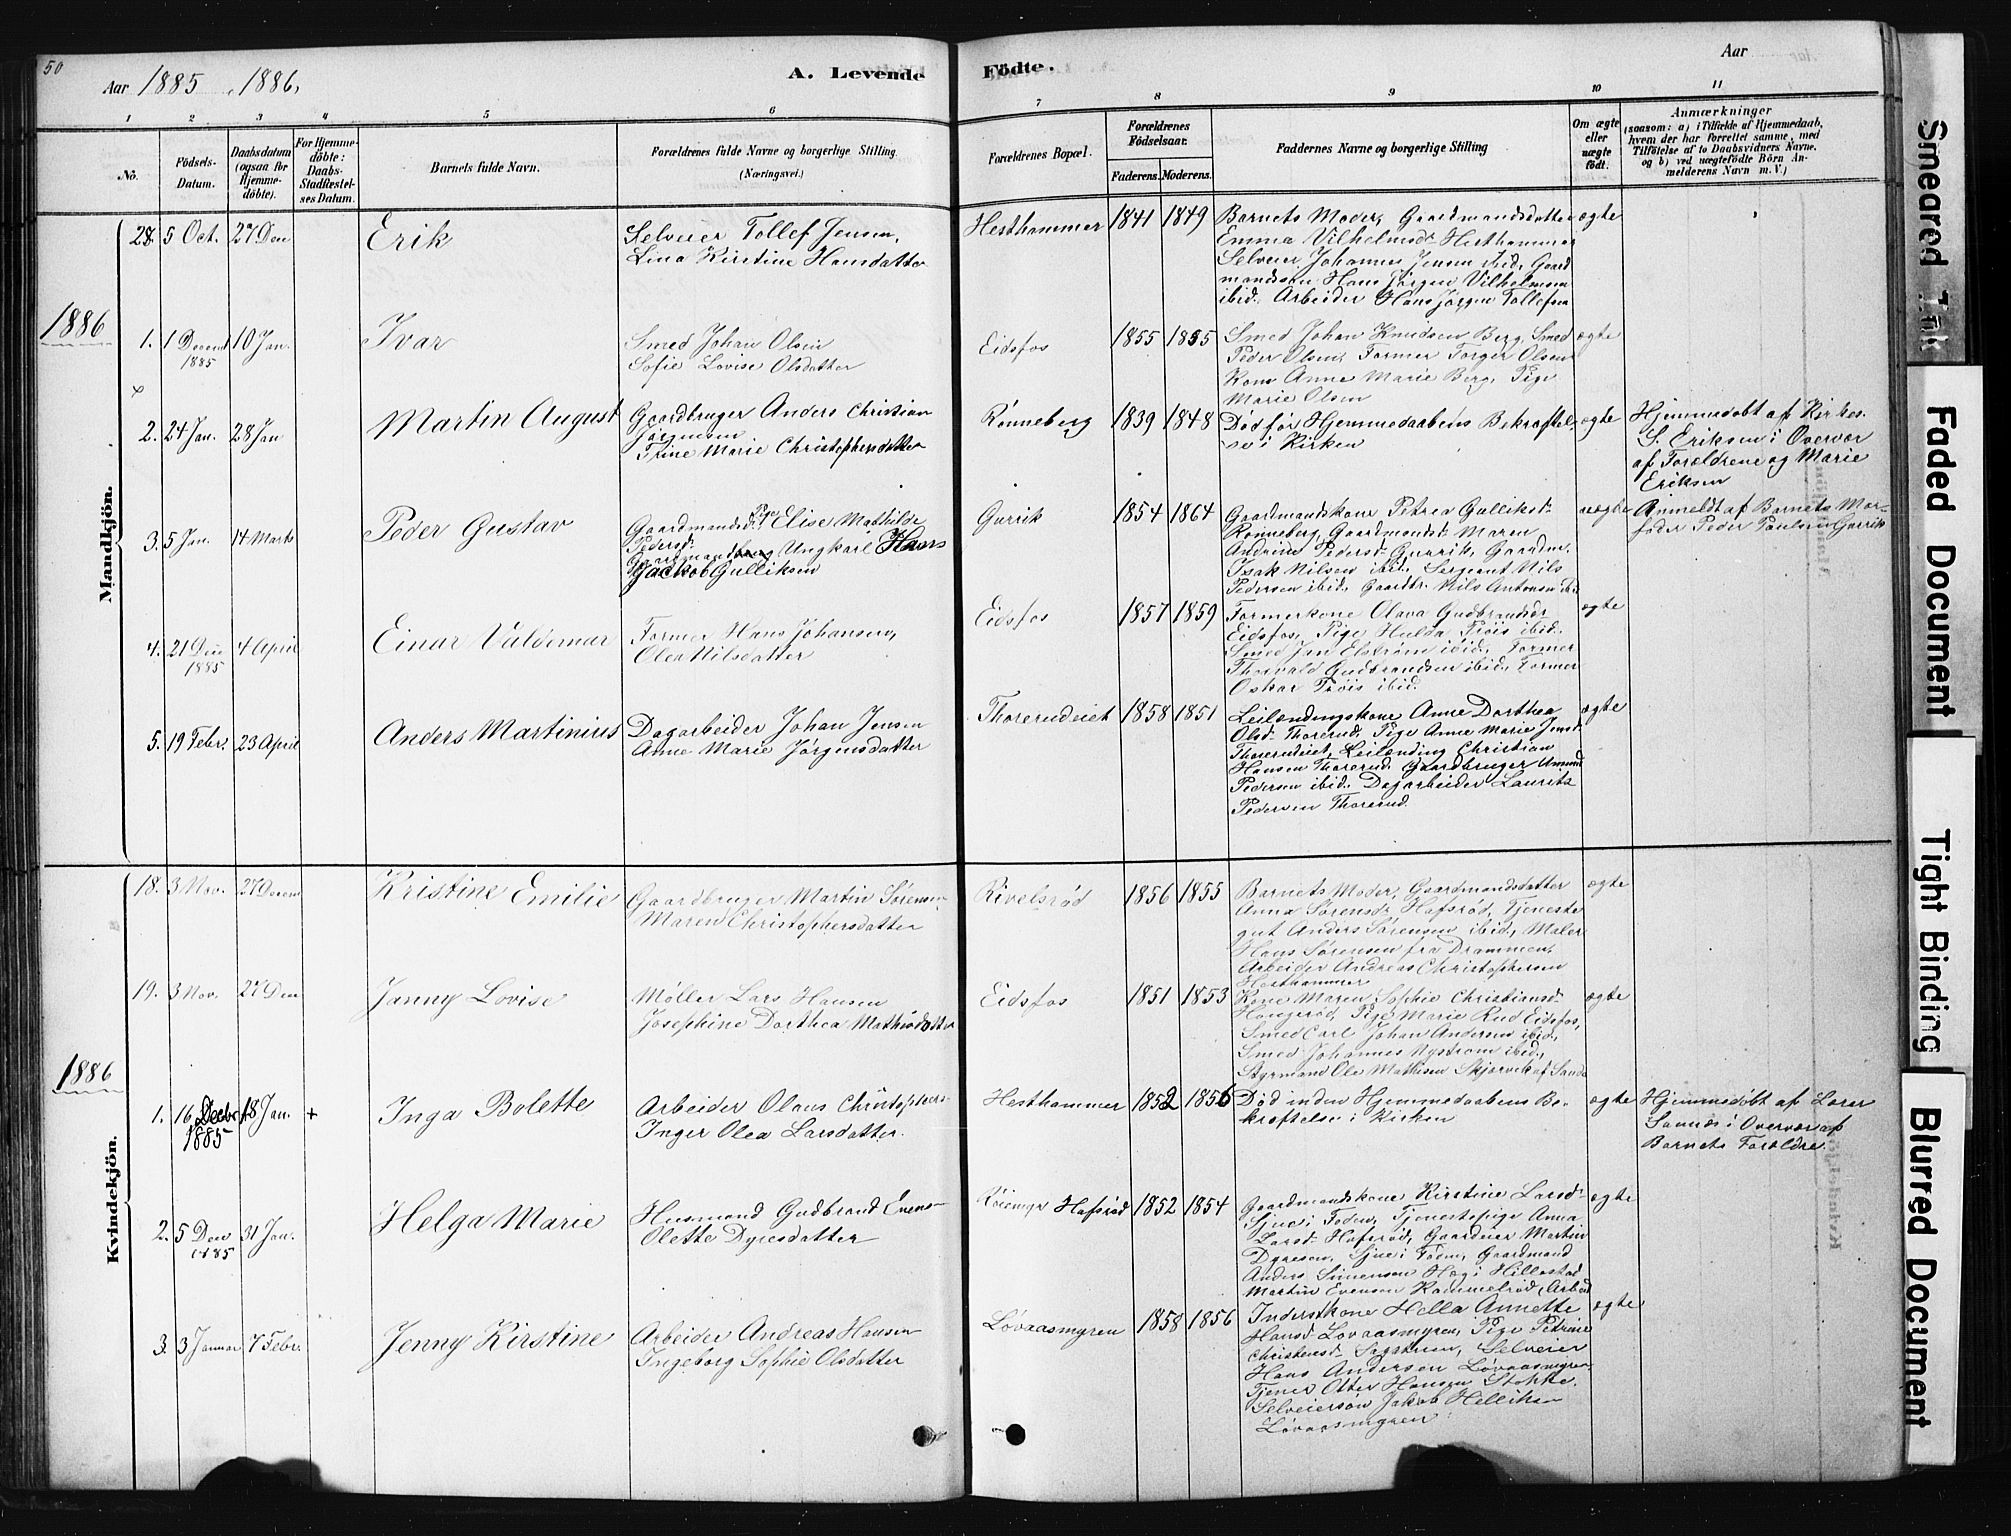 50
Aar 1885, 1886,
A. Levende
Födte.
Aar
1 2 3 4 5 6 7 8 9 10 11
No.
Födsels-
Datum.
Daabsdatum
(ogsaa for
Hjemme-
döbte).
For Hjemme-
döbte:
Daabs-
Stadfæstel-
ses Datum.
Barnets fulde Navn.
Forældrenes fulde Navne og borgerlige Stilling.
(Næringsvei.)
Forældrenes Bopæl.
Forældrenes
Födselsaar.
Faderens. Moderens.
Faddernes Navne og borgerlige Stilling
Om ægte
eller
uægte
födt.
Anmærkninger
(saasom: a) i Tilfælde af Hjemmedaab,
hvem der har forrettet samme, med
Tilföielse af to Daabsvidners Navne.
og b) ved uægtefödte Börn An-
melderens Navn m. V.)
Mandkjön.
28. 5 Oct. 27 Den
Erik
Selveier Tollef Jensen,
Lina Kirstine Hansdatter
Hesthammer 1841 1849
Barnets Moder, Gaardmandsdatter
Emma Vilhelmsd. Hesthammer
Selveier Johannes Jensen ibid. Gaard
mandssøn Hans Jørgen Vilhelmsen
ibid. Arbeider Hans Jørgen Tollefsen
ægte
1886
1. 1 Decemb 10 Jan.
1885
Ivar
Smed Johan Olsen
Sofie Lovise Olsdatter
Eidsfos 1855 1855
Smed Johan Knudsen Berg, Smed
Peder Olsen, Former Torger Olsen
Kone Anne Marie Berg, Pige
Marie Olsen
ægte
2. 24 Jan. 28 Jan
Martin August
Gaardbruger Anders Christian
Jørgensen
Trine Marie Christophersdatter
Rønneberg 1839 1848
Død før Hjemmedaabens Bekræftel-
se i Kirken
ægte
Hjemmedøbt af Kirkes.
S. Eriksen i Overvær
af Forældrene og Marie
Eriksen
3. 5 Jan. 14 Marts
Peder Gustav
Gaardmandsd. Pige Elise Mathilde
Pedersd.
Ungkarl Hans
Jackob Gulliksen
Gurrik 1854 1864
Gaardmandskone Petrea Galliksd.
Rønneberg, Gaardmandsd. Maren
Andrine Pedersd. Gurrik, Gaardm.
Isak Nilsen ibid. Sergeant Nils
Pedersen ibid, Gaardbr. Nils Antonsen ibid
uægte
Anmeldt af Barnets Mor-
fader Peder Paulsen Gurrik
4. 21 Den 4 April
1885
Einar Valdemar
Former Hans Johansen,
Olea Nilsdatter
Eidsfos 1857 1859
Formerkone Olava Gudbrandsdr
Eidsfos, Pige Hulda Frøis ibid.
Smed Jon Elstrøm ibid. Former
Thorvald Gudbrandsen ibid. Former
Oskar Frøis ibid.
ægte
5. 19 Febr. 23 April
Anders Martinius
Dagarbeider Johan Jensen
Anne Marie Jørgensdatter
Thorerudeiet 1858 1851
Leilændingskone Anne Dorthea
Olsd. Thorerud Pige Anne Marie Jensd.
Thorerudeiet, Leilænding Christian
Hansen Thorerud Gaardbruger Amund
Pedersen ibid. Dagarbeider Laurits
Pedersen Thorerud.
ægte
Kvindekjön.
18. 3 Nov. 27 Decem
Kristine Emilie
Gaardbruger Martin Sørensen
Maren Christophersdatter
Rivelsrød 1856 1855
Barnets Moder, Gaardmandsdatter
Anna Sørensd. Hafsrød, Tjeneste
gut Anders Sørensen ibid, Maler
Hans Sørensen fra Drammen,
Arbeider Andreas Christophersen
Hesthammer
ægte
19. 3 Nov. 27 Den
Janny Lovise
Møller Lars Hansen
Josephine Dorthea Mathisdatter
Eidsfos 1851 1853
Kone Maren Sophie Christiansd.
Haugerød, Pige Marie Rud Eidsfos,
Smed Carl Johan Andersen ibid,
Smed Johannes Nystrøm ibid,
Styrmand Ole Mathisen Skjærvik af Sande
ægte
1886
1. 16 Decbr 18 Jan. +
1885
Inga Bolette
Arbeider Olaus Christophers
Inger Olea Larsdatter.
Hesthammer 1852 1856
Død inden Hjemmedaabens Be-
kræftelse i Kirken
ægte
Hjemmedøbt af Lærer
i Overvær af
Barnets Forældre.
2. 5 Den 31 Jan.
1885
Helga Marie
Husmand Gudbrand Evens
Olette Dyresdatter
Røiemyr Hafsrød 1852 1854
Gaardmandskone Kirstine Larsd.
Sjue i Foden, Tjenestepige Anna
Larsd. Hafsrød, Gaardner Martin
Dyresen, Sjue i Foen, Gaardmand
Anders Simensen Hæg i Hillestad
Martin Evensen Rammelrød, Arbeid
ægte
3. 3 Januar 7 Febr.
Jenny Kirstine
Arbeider Andreas Hansen
Ingeborg Sophie Olsdatter
Løvaasmyren 1858 1856
Inderstkone Hella Annette
Hansd. Løvaasmyren, Pige Petrine
Christensd. Selveier
Hans Andersen Løvaasmyren,
Tjener Otter Hansen Stokke
Selveiersøn Jakob Helliksen
Løvaasmyren
ægte
Smeared Ink
Faded Document
Tight Binding
Blurred Document